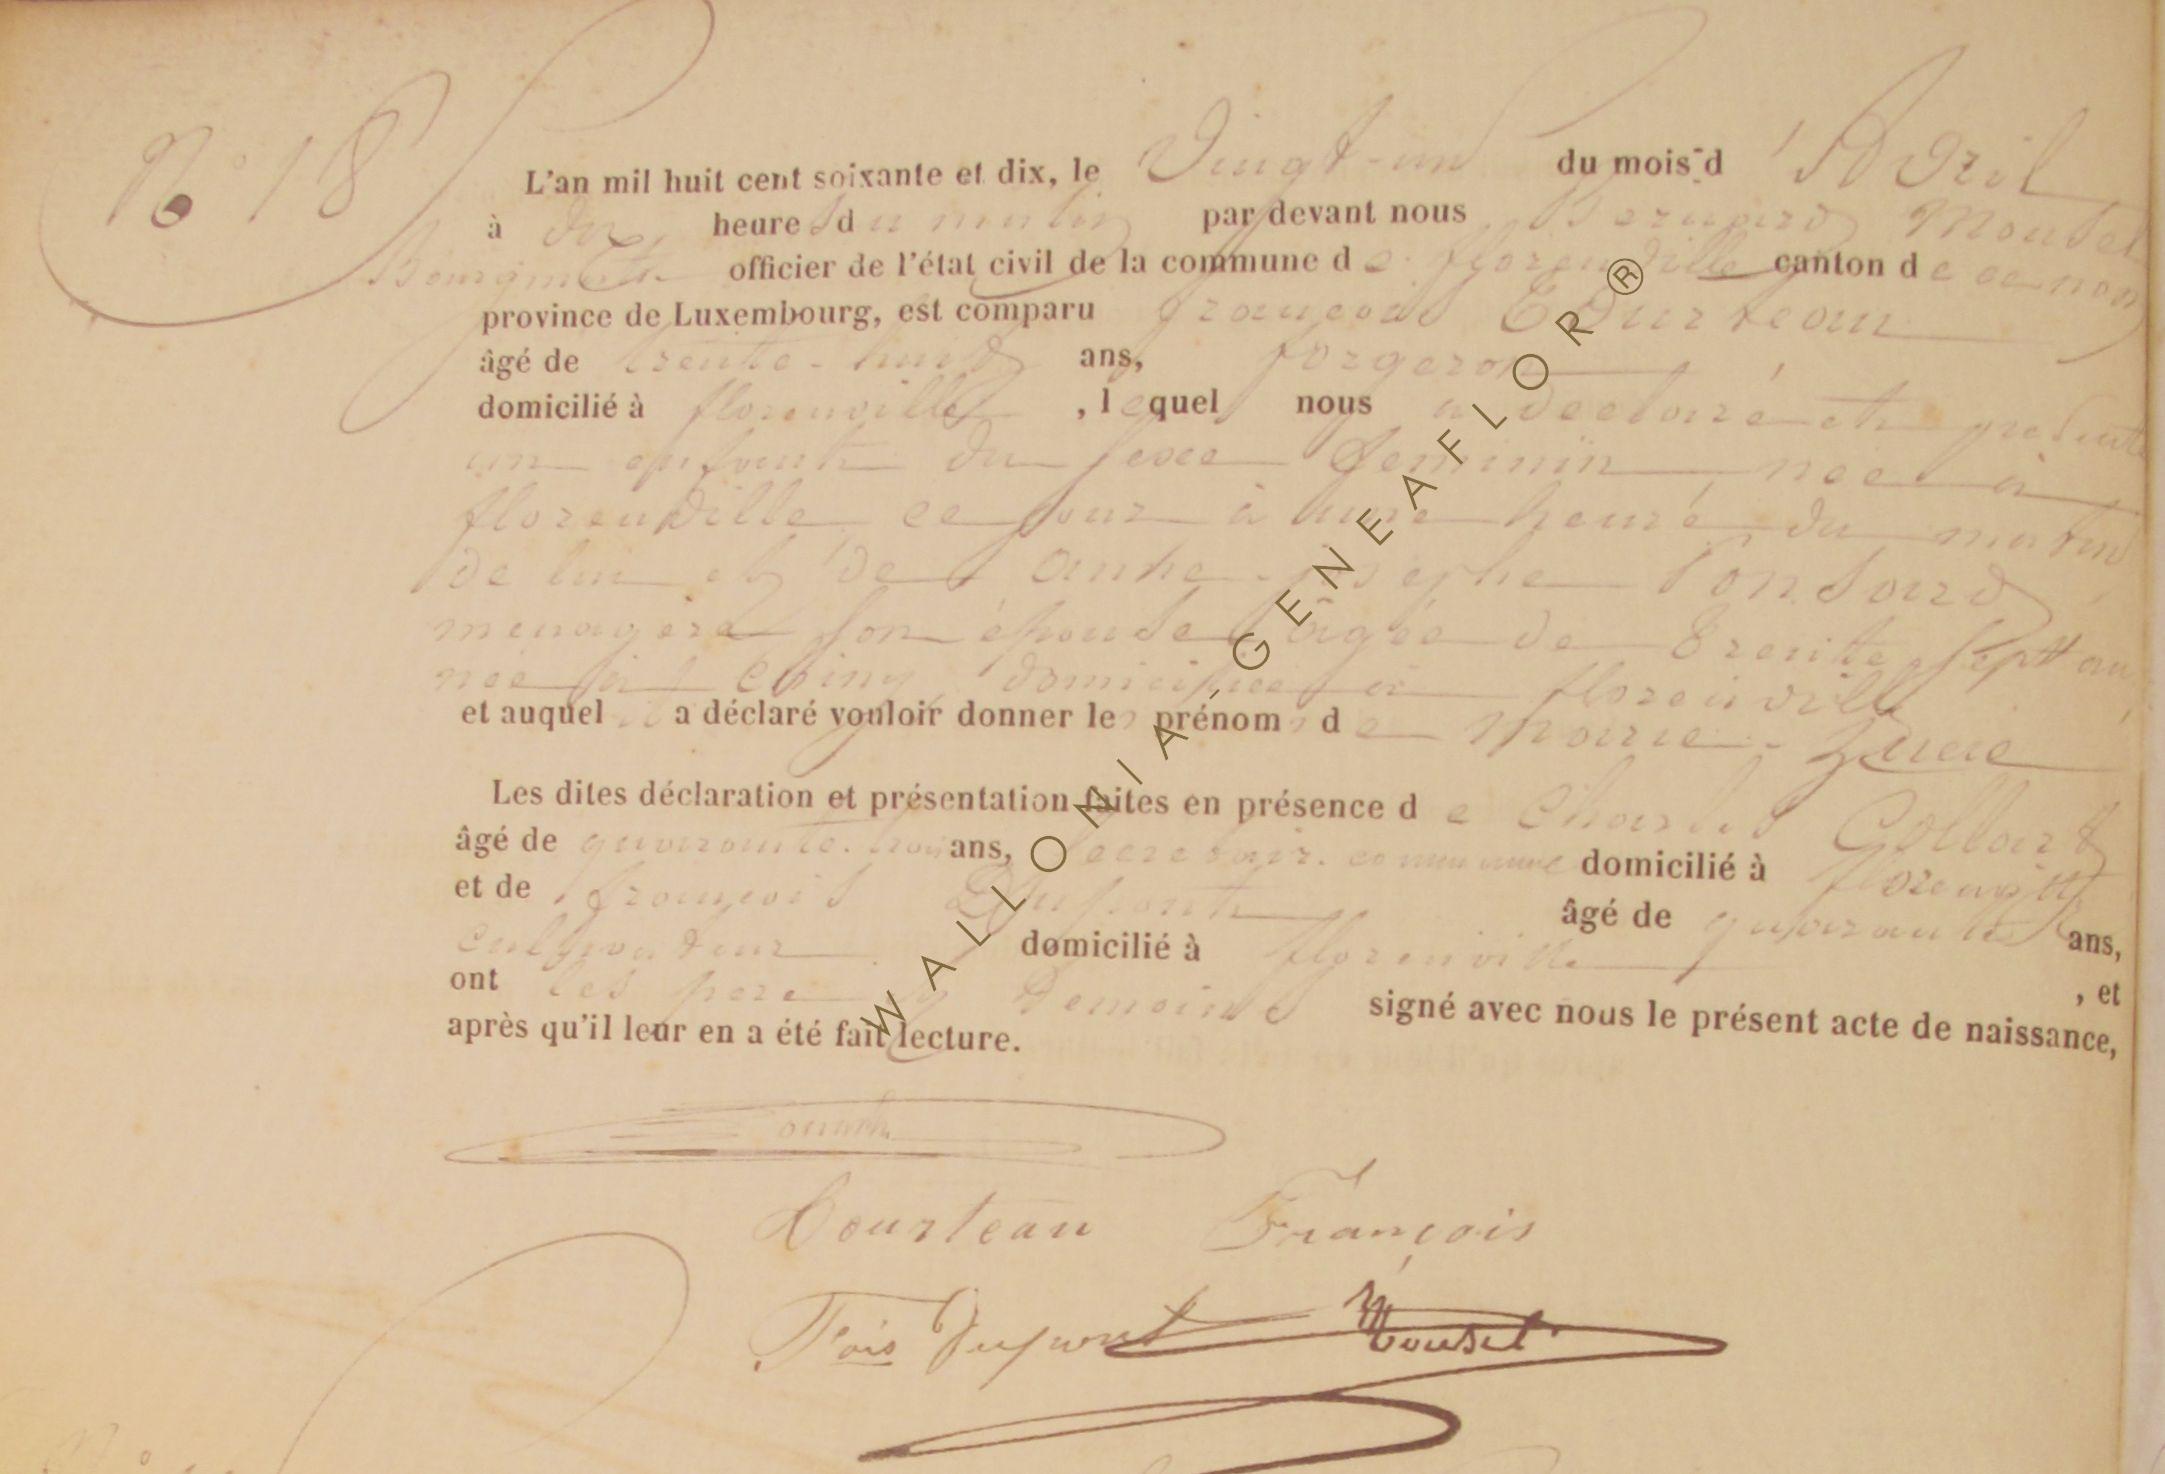 N° 18
L'an mil huit cent soixante et dix, le Vingt-un du mois d'Avril
à dix heures du matin par devant nous Bernard Mousel
Bourgmestre officier de l'état civil de la commune de florenville canton de ce nom
province de Luxembourg, est comparu françois Courteau
âgé de trente-huit ans, forgeron
domicilié à florenville, lequel nous a déclaré et présenté
un enfant du sexe feminin née à
florenville ce jour à une heure du matin
de lui et de Anne-josephe Ponsard
menagere son épouse âgée de trente sept ans
née à domiciliée à florenville
et auquel il a déclaré vouloir donner les prénoms de Marie-
Les dites déclaration et présentation faites en présence de Charles Collart
âgé de quarante-trois ans, secretair. communal domicilié à florenville
et de françois Dupont âgé de quarante ans,
cultivateur domicilié à florenville , et
ont les pere et temoins signé avec nous le présent acte de naissance,
après qu'il leur en a été fait lecture.
Courteau François
Fois Dupont Mousel
WALLONIA - GENEAFLOR®
N°